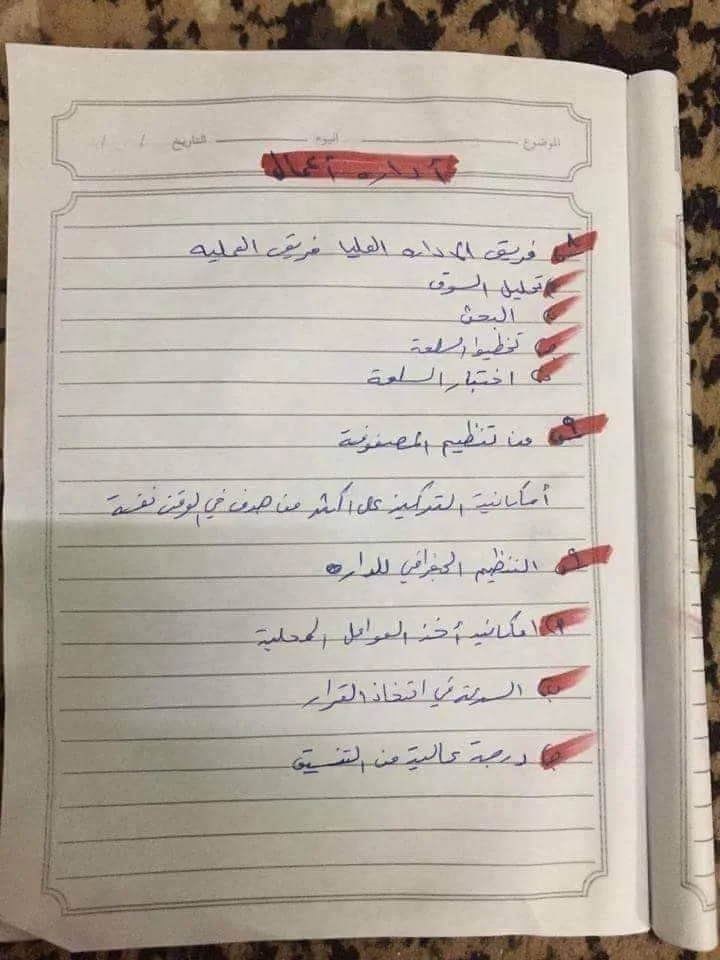 الموضوع اليوم التاريخ / /
أداره أعمال
س٨ فريق الاداره العليا فريق العمليه
تحليل السوق
البحث
تخطيط السلعة
اختبار السلعة
س٩ من تنظيم المصفوفة
أمكانية التركيز على اكثر من هدف في الوقت نفسة
س٩ التنظيم الجغرافي للداره
امكانيه أخذ العوامل المحلية
السرعة في اتخاذ القرار
درجة عالية من التنسيق